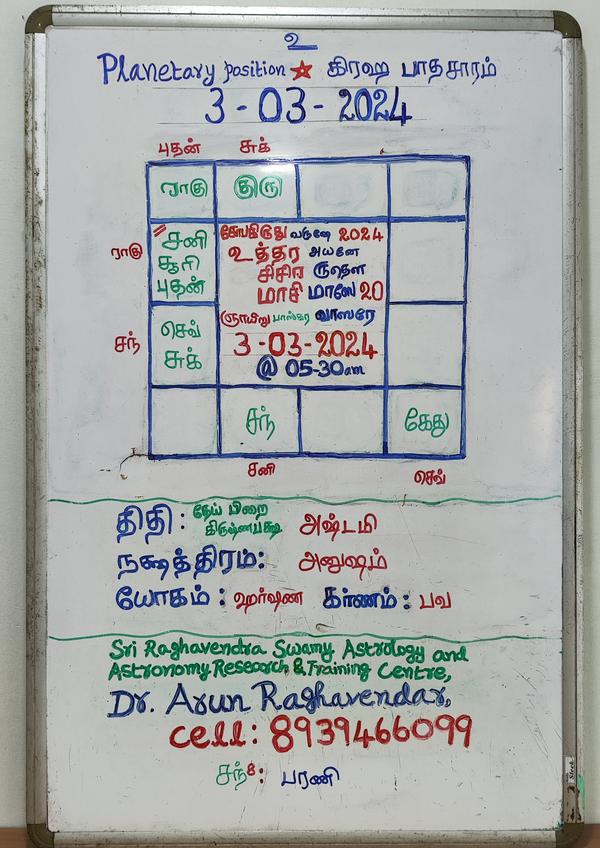 உ
Planetary position ★ கிரஹ பாதசாரம்
3-03-2024
புதன் சுக்
ராகு குரு
ராகு சனி சூரி புதன்
சோபகிருது வருஷே 2024
உத்தர அயனே
சிசிர ருதௌ
மாசி மாஸே 20
ஞாயிறு பாஸ்கர வாஸரே
3-03-2024
@ 05-30am
சந் செவ் சுக்
சந் கேது
சனி செவ்
திதி: தேய் பிறை கிருஷ்ணபக்ஷ அஷ்டமி
நக்ஷத்திரம்: அனுஷம்
யோகம்: ஹர்ஷண கர்ணம்: பவ
Sri Raghavendra Swamy Astrology and
Astronomy Research & Training Centre,
Dr. Arun Raghavendar,
cell: 8939466099
சந்8: பரணி